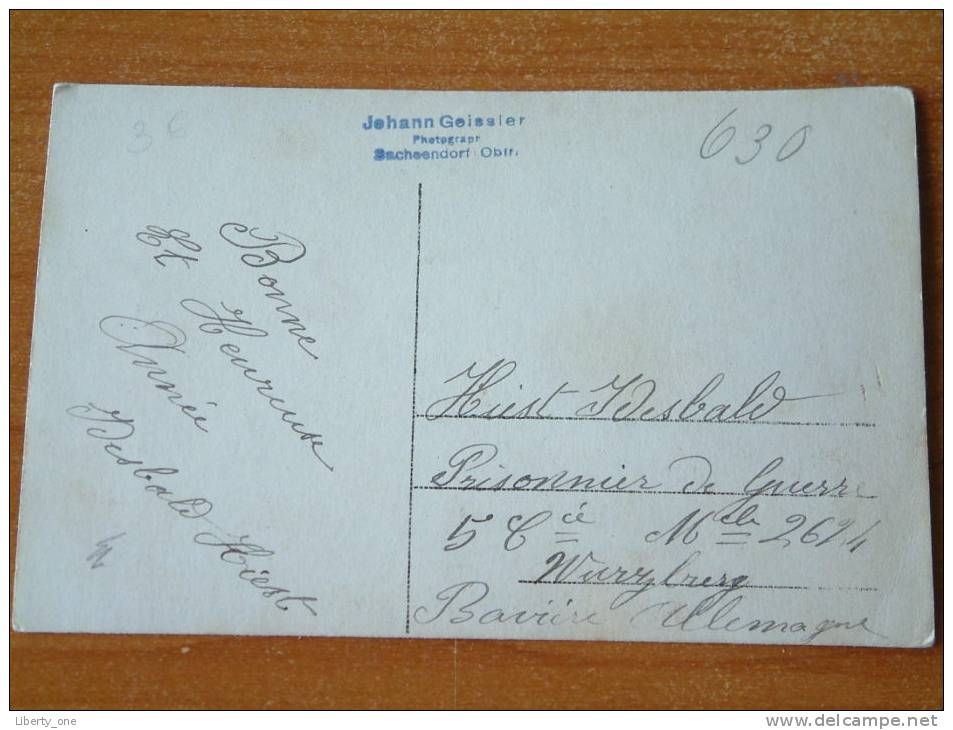 3 €
Johann Geissler
Photograph
Sachsendorf Obfr.
630
Bonne
Et Heureuse
Année
Idesbald Hiest
Hiest Idesbald
Prisonnier de Guerre
5 Cie Mcle 2624
Wurzburg
Bavière Allemagne
Liberty_one
www.delcampe.net